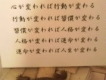 心が変われば行動が変わる
行動が変われば習慣が変わる
習慣が変われば人格が変わる
人格が変われば運命が変わる
運命が変われば人生が変わる